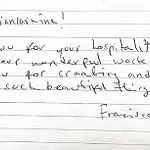 you for your hospitality
your wonderful work
you for creating and
such beautiful thing
Francisco